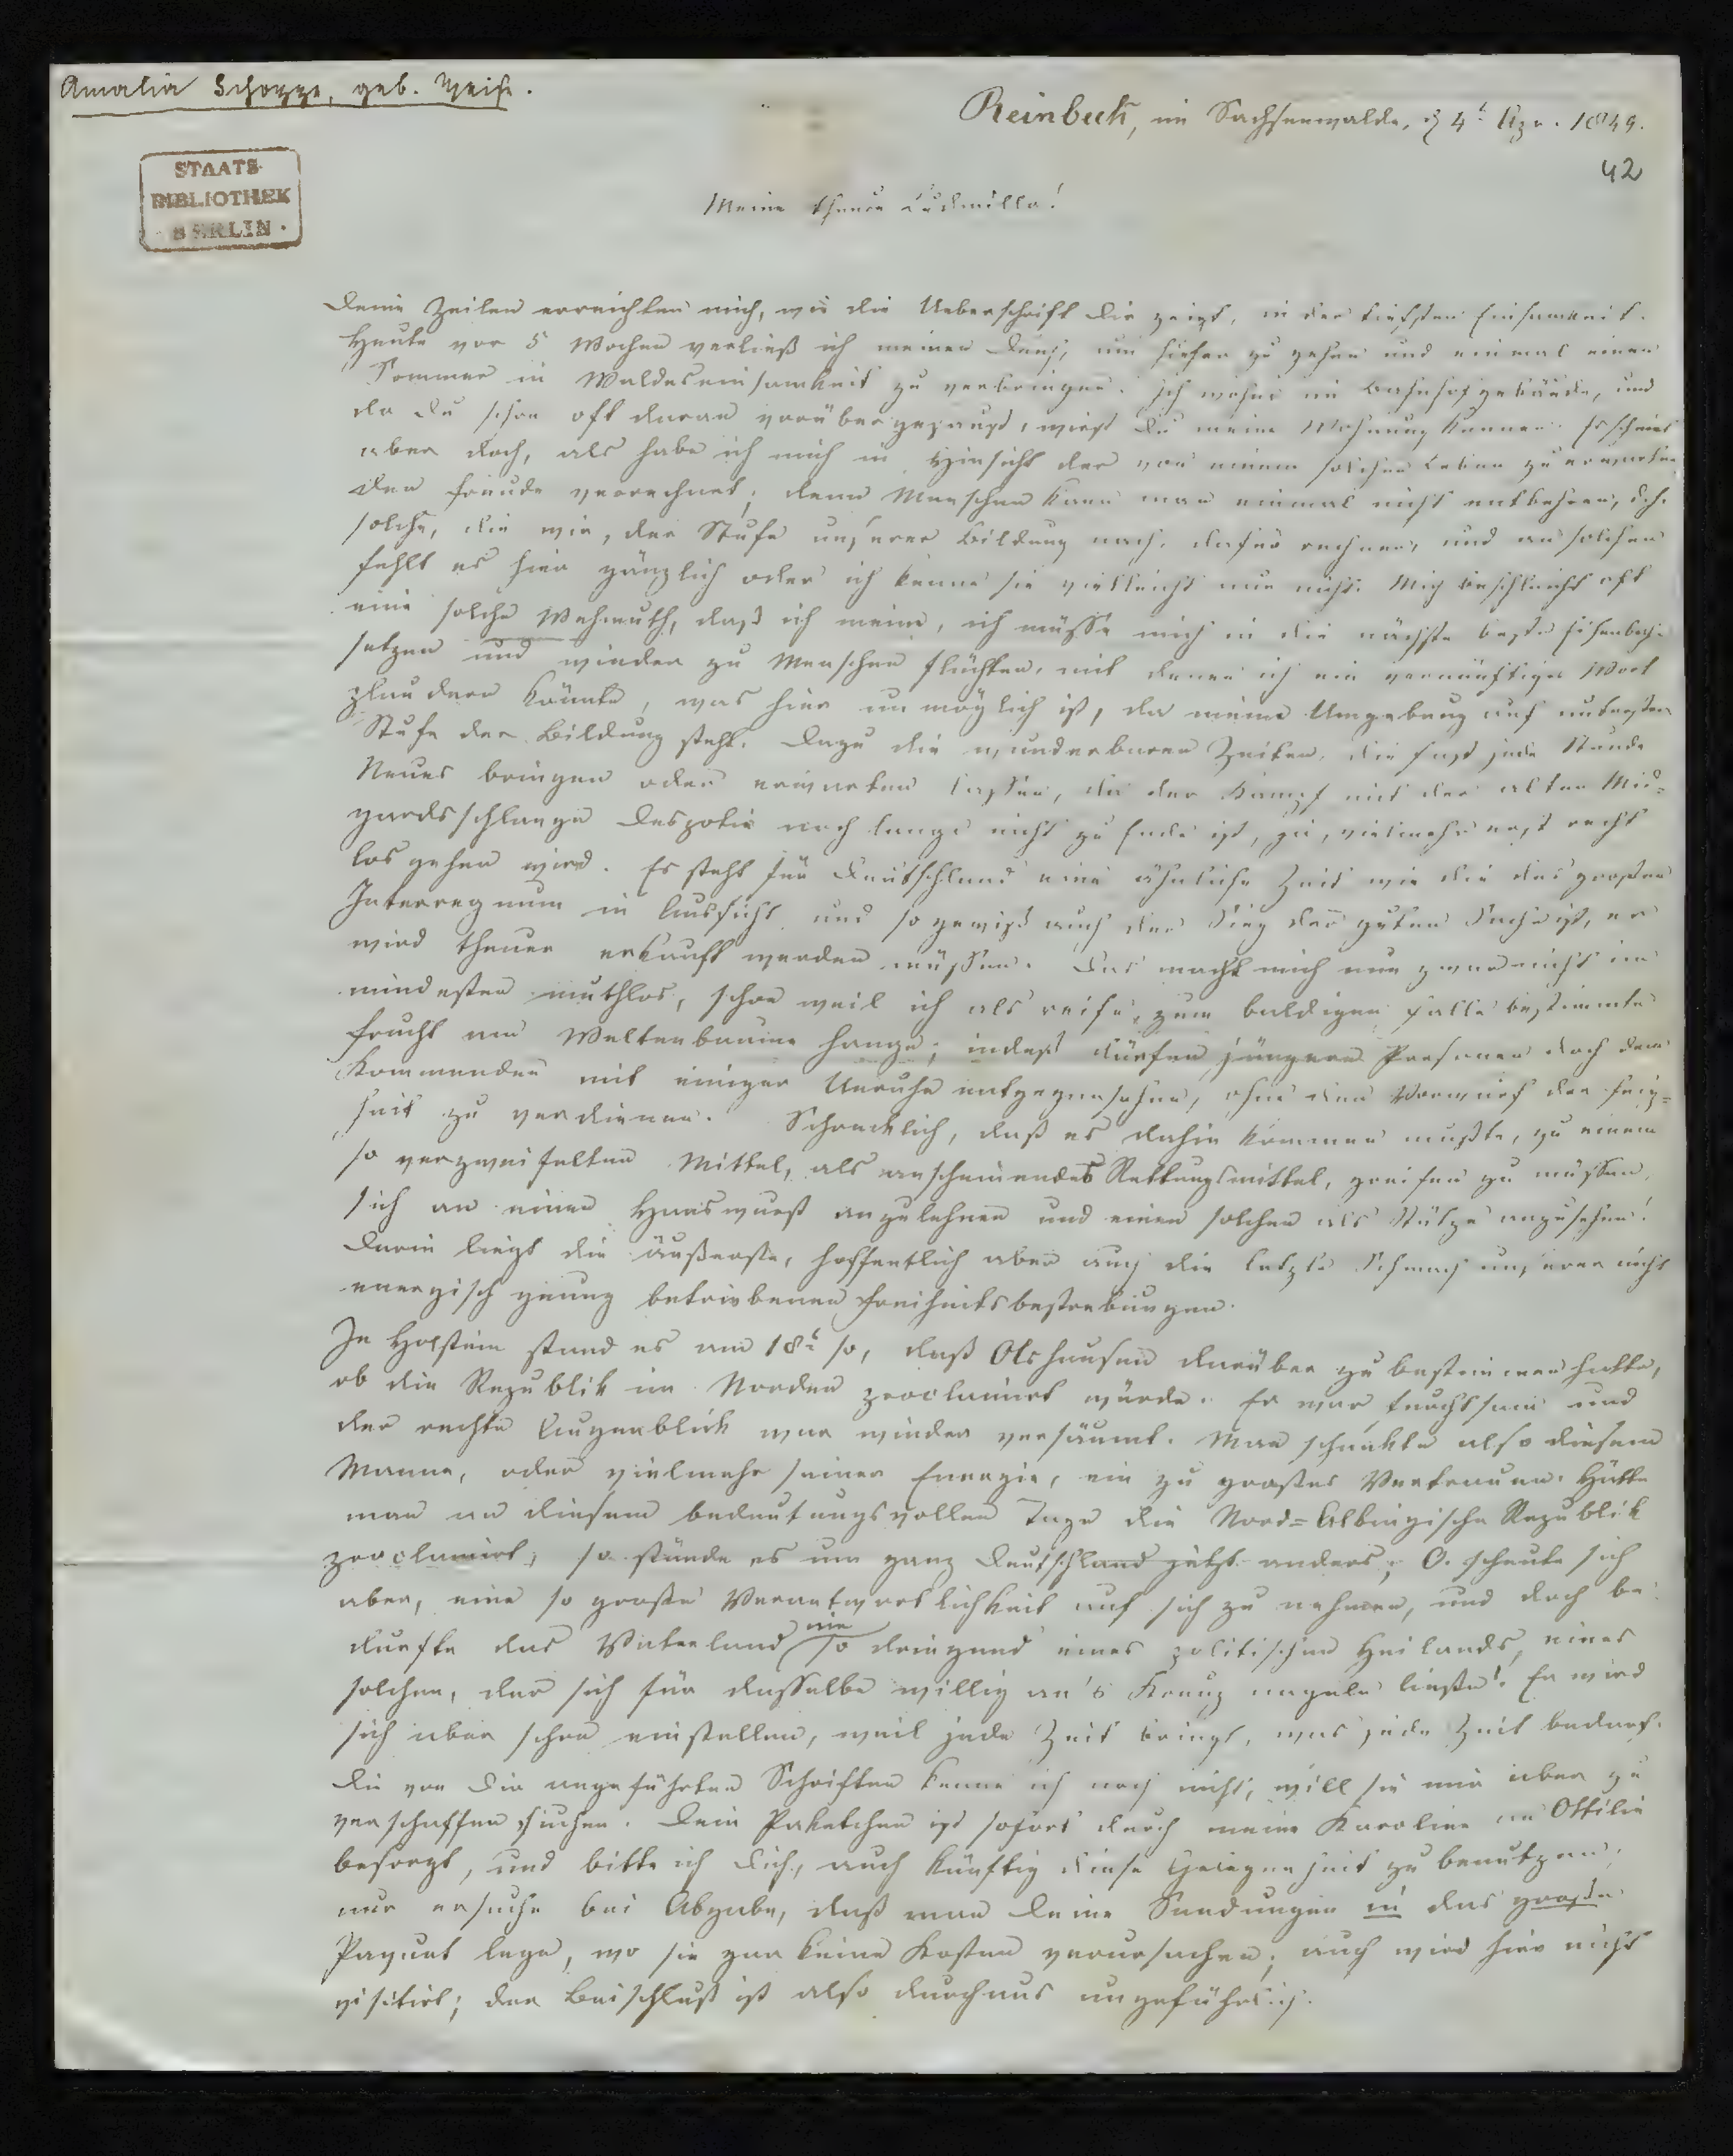 Amalia Schoppe, geb. Weise.
Reinbeck, im Sachsenwalde, d 4t Apr. 1849.
42
STAATS-
BIBLIOTHEK
BERLIN
Meine theure Ludmilla!
Deine Zeilen erreichten mich, wie die Ueberschrift dir zeigt, in der tiefsten Einsamkeit.
Heute vor 5 Wochen verließ ich meinen um hieher zu gehen und einmal einen
Sommer in Waldeseinsamkeit zu verbringen. Ich wohne im Bahnhofgebäude, und
da Du schon oft daran vorübergesaust, wirst Du meine Wohnung kennen. Es scheint
aber doch, als habe ich mich in Hinsicht der von einem solchen Leben zu erwarten
den Freude verrechnet; denn Menschen kann man einmal nicht entbehren, d.h.
solche, die wir, der Stufe unserer Bildung nach, dafür rechnen, und an solchen
fehlt es hier gänzlich oder ich kenne sie vielleicht nur nicht. Mich beschleicht oft
eine solche Wehmuth, daß ich meine, ich müsse mich in die nächste beste Eisenbahn
setzen und wieder zu Menschen flüchten, mit denen ich ein vernünftiges Wort
plaudern könnte, was hier unmöglich ist, da meine Umgebung auf unterster
Stufe der Bildung steht. Dazu die wunderbaren Zeiten, die fast jede Stunde
Neues bringen oder erwarten lassen, da der Kampf mit der alten Mid-
gardsschlange Despotie noch lange nicht zu Ende ist, ja, vielmehr erst recht
los gehen wird. Es steht für Deutschland eine ähnliche Zeit wie die des großen
Interregnum in Aussicht und so gewiß auch der Sieg der guten Sache ist, er
wird theuer erkauft werden müssen. Das macht mich nun zwar nicht im
mindesten muthlos, schon weil ich als reife, zum baldigen Falle bestimmte
Frucht am Weltenbaume hange; indeß dürfen jüngere Personen doch dem
Kommenden mit einiger Unruhe entgegensehen, ohne den Vorwurf der Feig-
heit zu verdienen. Schrecklich, daß es dahin kommen mußte, zu einem
so verzweifelten Mittel, als anscheinendes Rettungsmittel, greifen zu müssen,
sich an einen Hanswurst anzulehnen und einen solchen als Stütze anzusehen!
Darin liegt die äußerste, hoffentlich aber auch die letzte Schmach unserer nicht
energisch genug betriebenen Freiheitsbestrebungen.
In Holstein stand es am 18t so, daß Olshausen darüber zu bestimmen hatte,
ob die Republik im Norden proclamirt würde. Er war furchtsam und
der rechte Augenblick war wieder versäumt. Man schenkte also diesem
Manne, oder vielmehr seiner Energie, ein zu großes Vertrauen. Hätte
man an diesem bedeutungsvollen Tage die Nord=Albingische Republik
proclamirt, so stünde es um ganz Deutschland jetzt anders; O. scheute sich
aber, eine so große Verantwortlichkeit auf sich zu nehmen, und doch be-
durfte das Vaterland nie so dringend eines politischen Heilands, eines
solchen, der sich für dasselbe willig an's Kreuz nageln ließe! Er wird
sich aber schon einstellen, weil jede Zeit bringt, was jede Zeit bedarf.
Die von Dir angeführten Schriften kenne ich noch nicht, will sie mir aber zu
verschaffen suchen. Dein Paketchen ist sofort durch meine Karoline an Ottilie
besorgt, und bitte ich Dich, auch künftig diese Gelegenheit zu benutzen;
nur ersuche bei Abgabe, daß man Deine Sendungen in das große
Paquet lege, wo sie gar keine Kosten verursachen; auch wird hier nicht
visitirt; der Beischluß ist also durchaus ungefährlich.